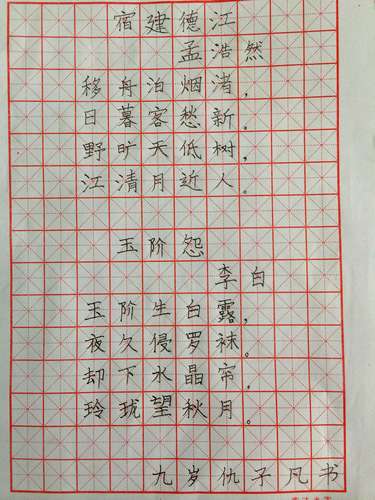 宿建德江
孟浩然
移舟泊烟渚，
日暮客愁新。
野旷天低树，
江清月近人。
玉阶怨
李白
玉阶生白露，
夜久侵罗袜。
却下水晶帘，
玲珑望秋月。
九岁仇子凡书